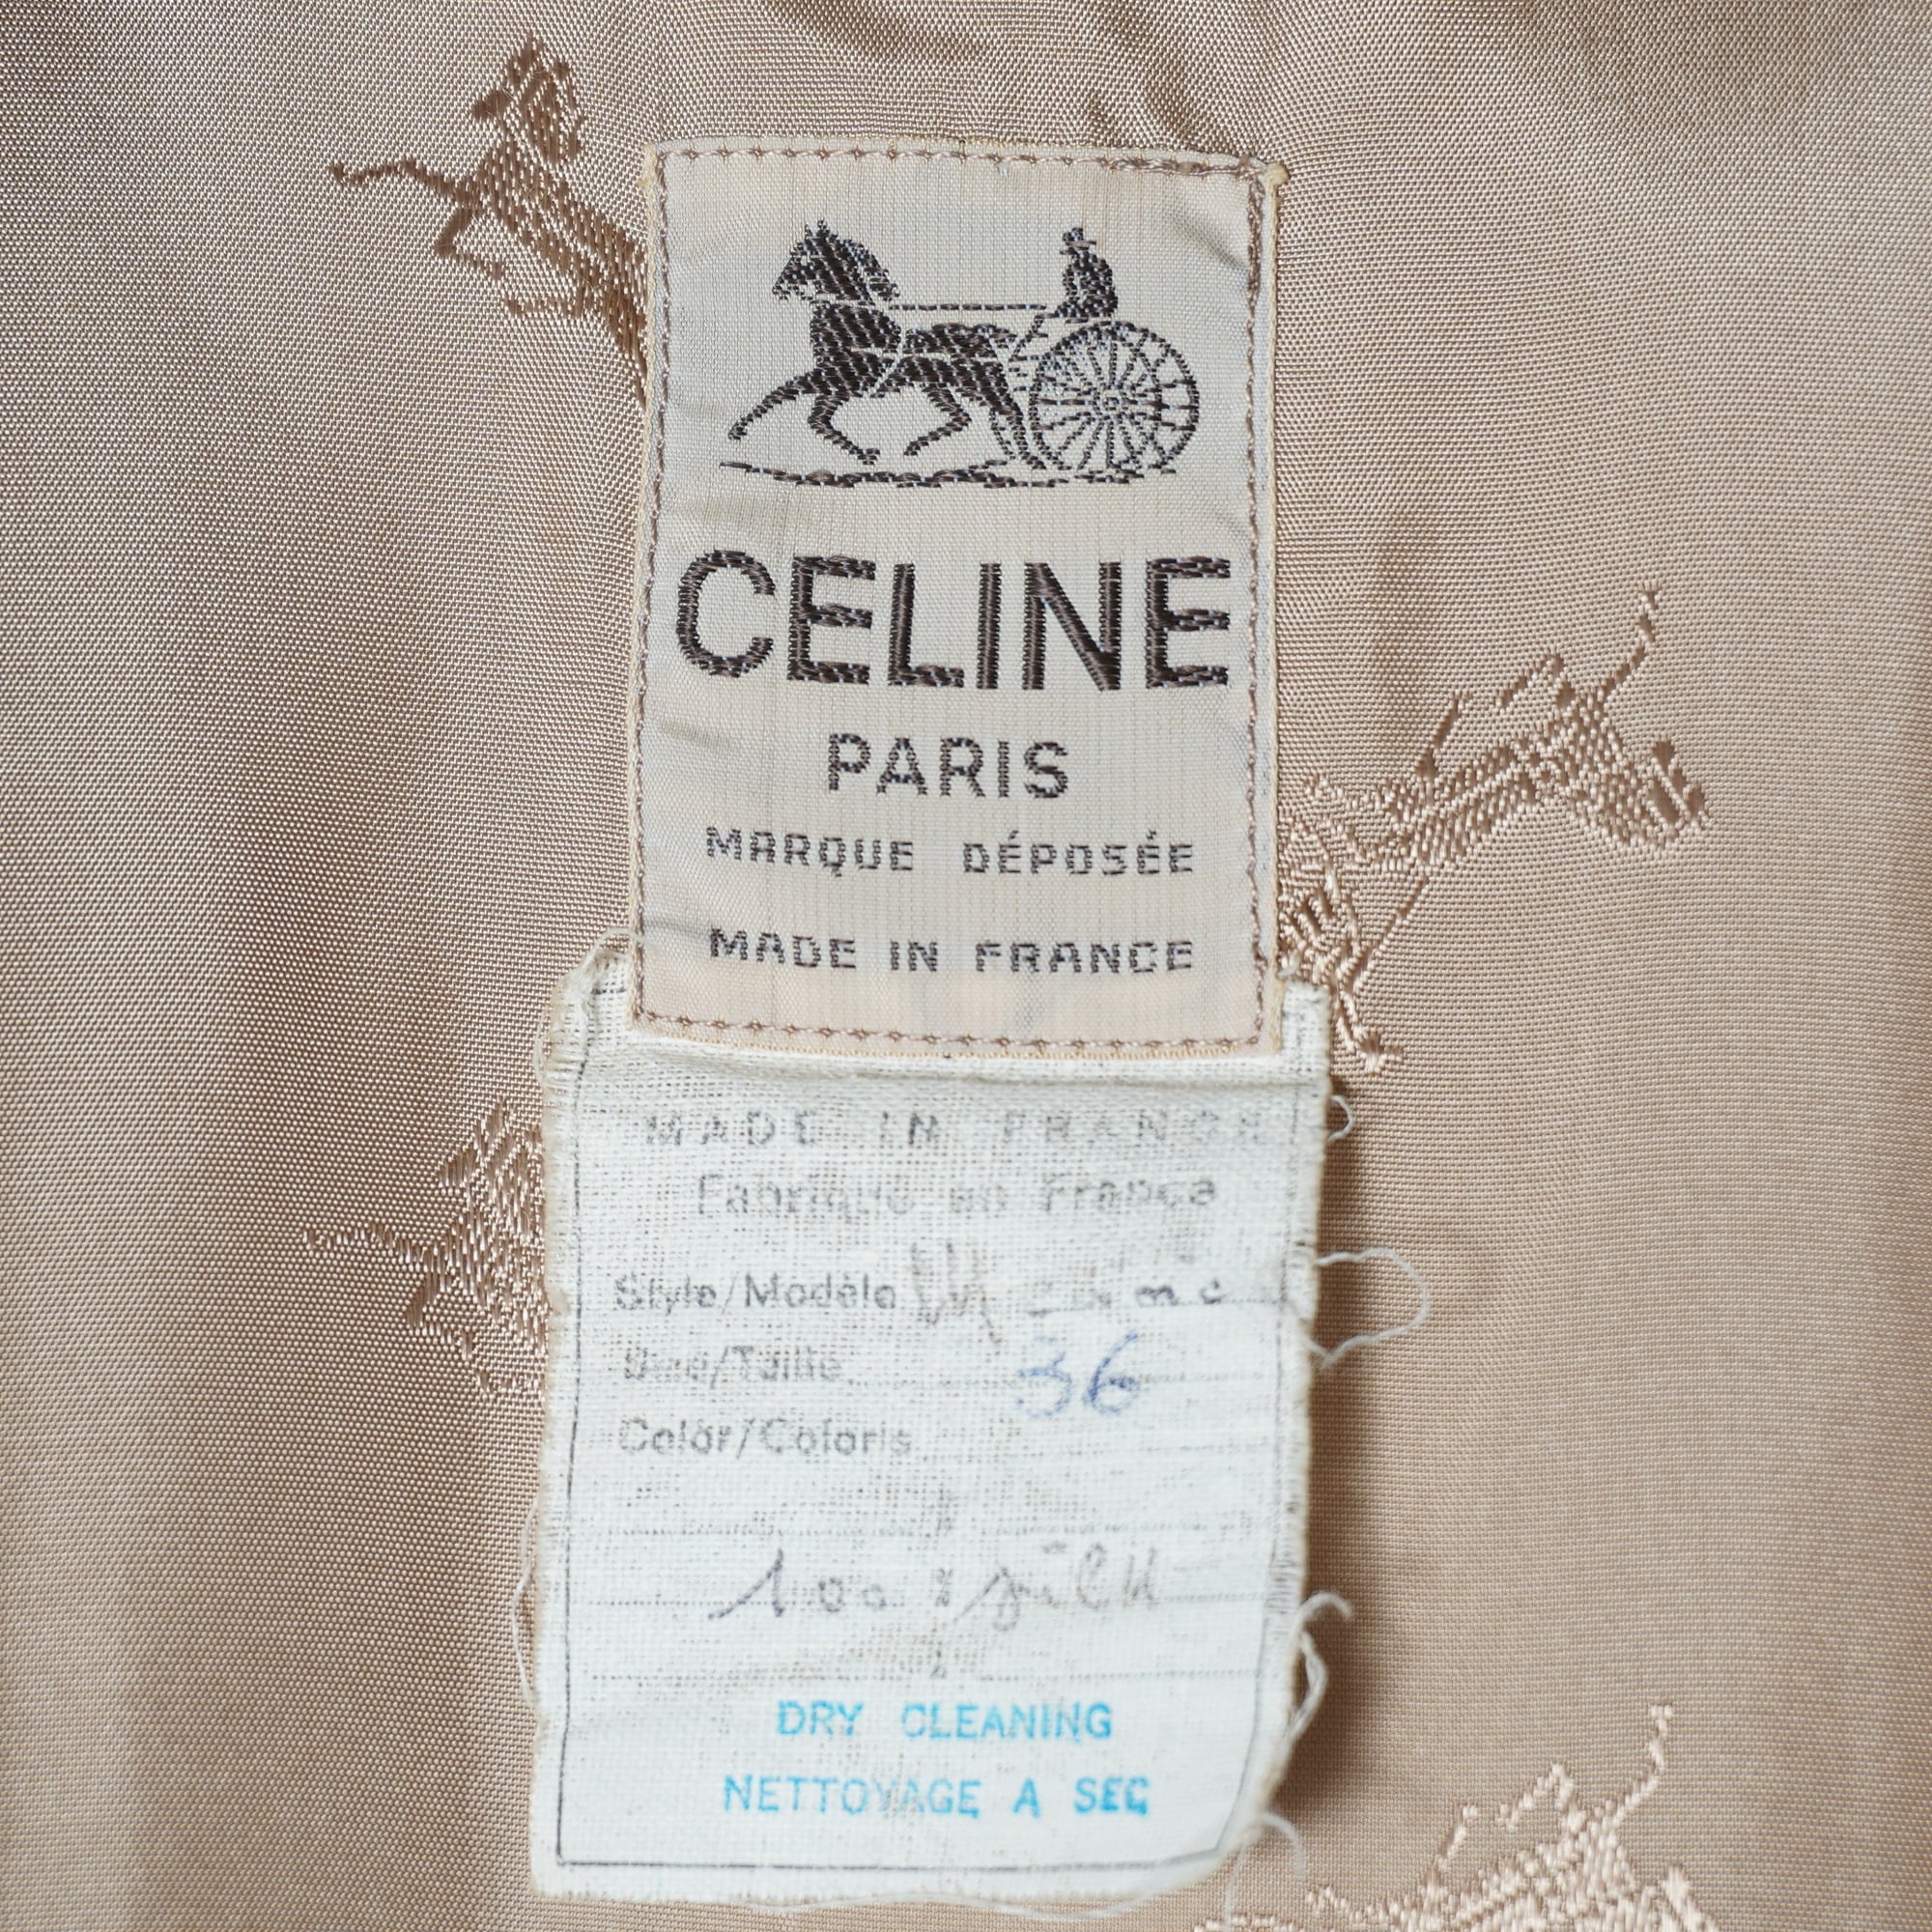 CELINE
PARIS
MARQUE DÉPOSÉE
MADE IN FRANCE
MADE IN FRANCE
Fabriqué en France
Style/Modèle
Size/Taille 36
Color/Coloris
100% silk
DRY CLEANING
NETTOYAGE A SEC